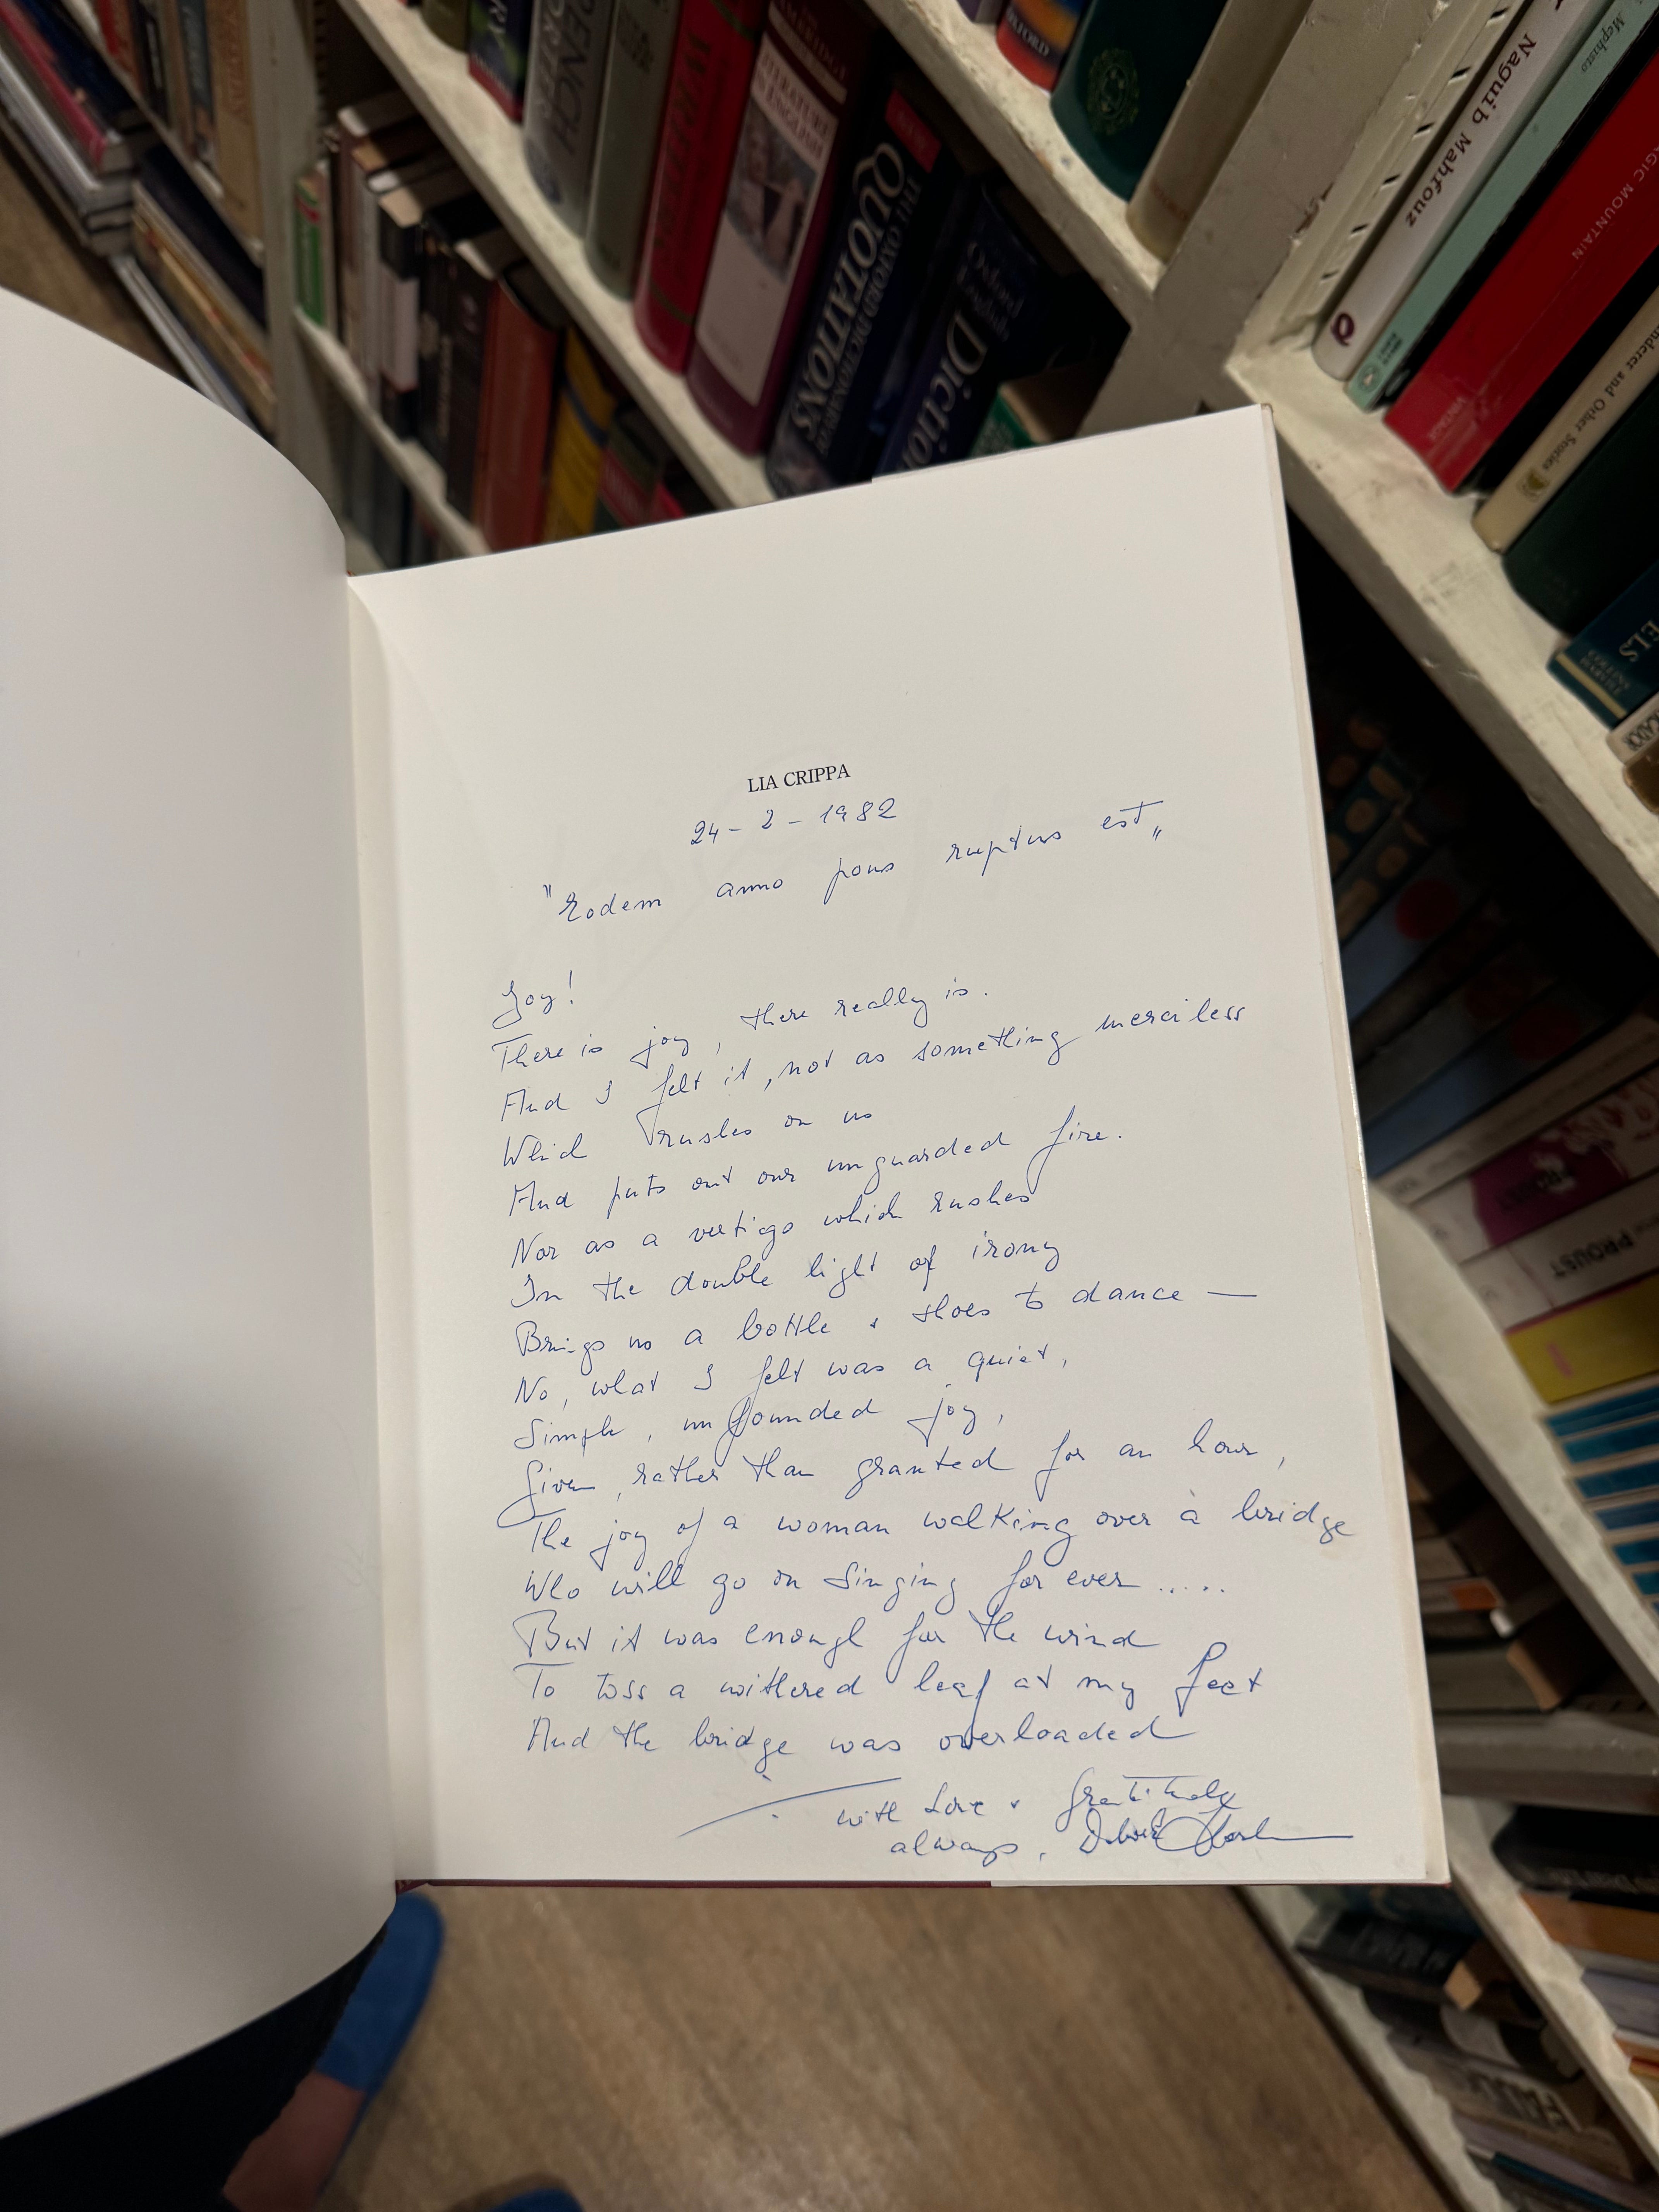 LIA CRIPPA
24 - 2 - 1982
"Eodem anno pons ruptus est„
Joy!
There is joy, there really is.
And I felt it, not as something merciless
Which rushes on us
And puts out our unguarded fire.
Nor as a vertigo which rushes
In the double light of irony
Brings us a bottle & shoes to dance —
No, what I felt was a quiet,
Simple, unfounded joy,
Given, rather than granted for an hour,
The joy of a woman walking over a bridge
Who will go on singing for ever .....
But it was enough for the wind
To toss a withered leaf at my feet
And the bridge was overloaded
with Love & Gratitude
always,
Naguib Mahfouz
Mephisto
MAGIC MOUNTAIN
VINTAGE
and Other Stories
THE OXFORD DICTIONARY OF
QUOTATIONS
WRITERS
PROUST